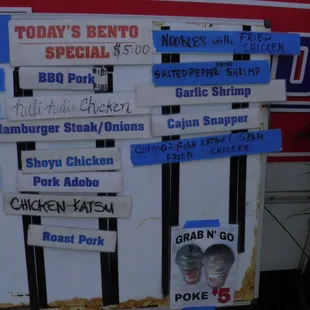 TODAY'S BENTO
SPECIAL $5.00
BBQ Pork RIBS
huli-huli Chicken
Hamburger Steak/Onions
Shoyu Chicken
Pork Adobo
CHICKEN KATSU
Roast Pork
NOODLES with FRIED
CHICKEN
SALTED PEPPER SHRIMP
Garlic Shrimp
Cajun Snapper
COMBO: FISH KATSU / SPAM
FRIED CHICKEN
GRAB N' GO
POKE $5